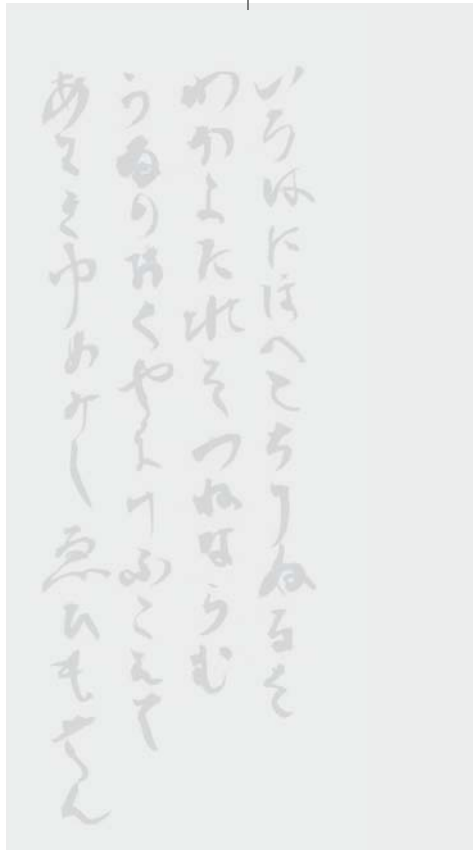 いろはにほへとちりぬるを
わかよたれそつねならむ
うゐのおくやまけふこえて
あさきゆめみしゑひもせん